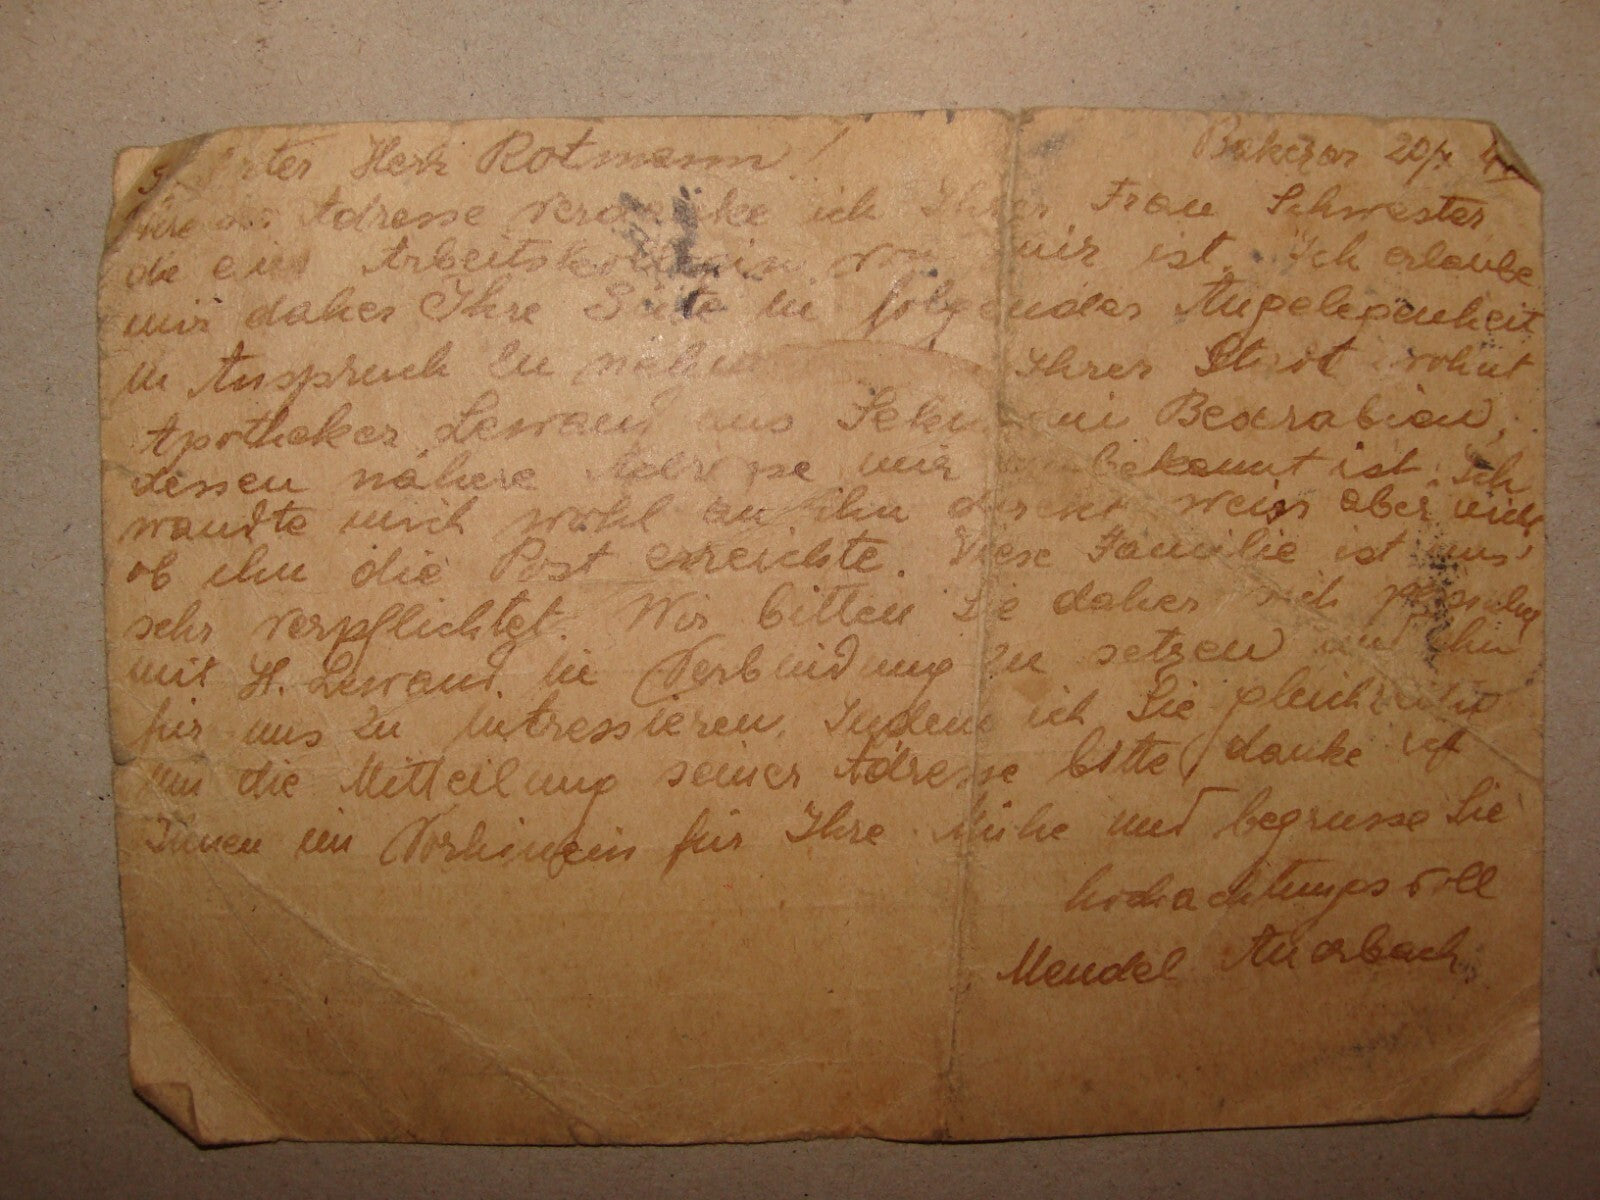 Herr Rotmann! Bakczar 20/
Adresse verdanke ich Ihrer Frau Schwester
die eine Arbeitskollegin von mir ist. Ich erlaube
mir daher Ihre Güte in folgender Angelegenheit
in Anspruch zu Ihrer Stadt wohnt
Apotheker Lewand aus in Bessrabien,
dessen nähere Adresse mir unbekannt ist. Ich
wandte mich wohl an ihn direkt weiss aber nicht
ob ihn die Post erreichte. Diese Familie ist uns
sehr verpflichtet. Wir bitten Sie daher sich
mit H. Lewand in Verbindung zu setzen und ihn
für uns zu intressieren. Indem ich Sie gleichzeitig
um die Mitteilung seiner Adresse bitte, danke ich
Ihnen im Vorhinein für Ihre Mühe und begrusse Sie
hochachtungsvoll
Mendel Auerbach